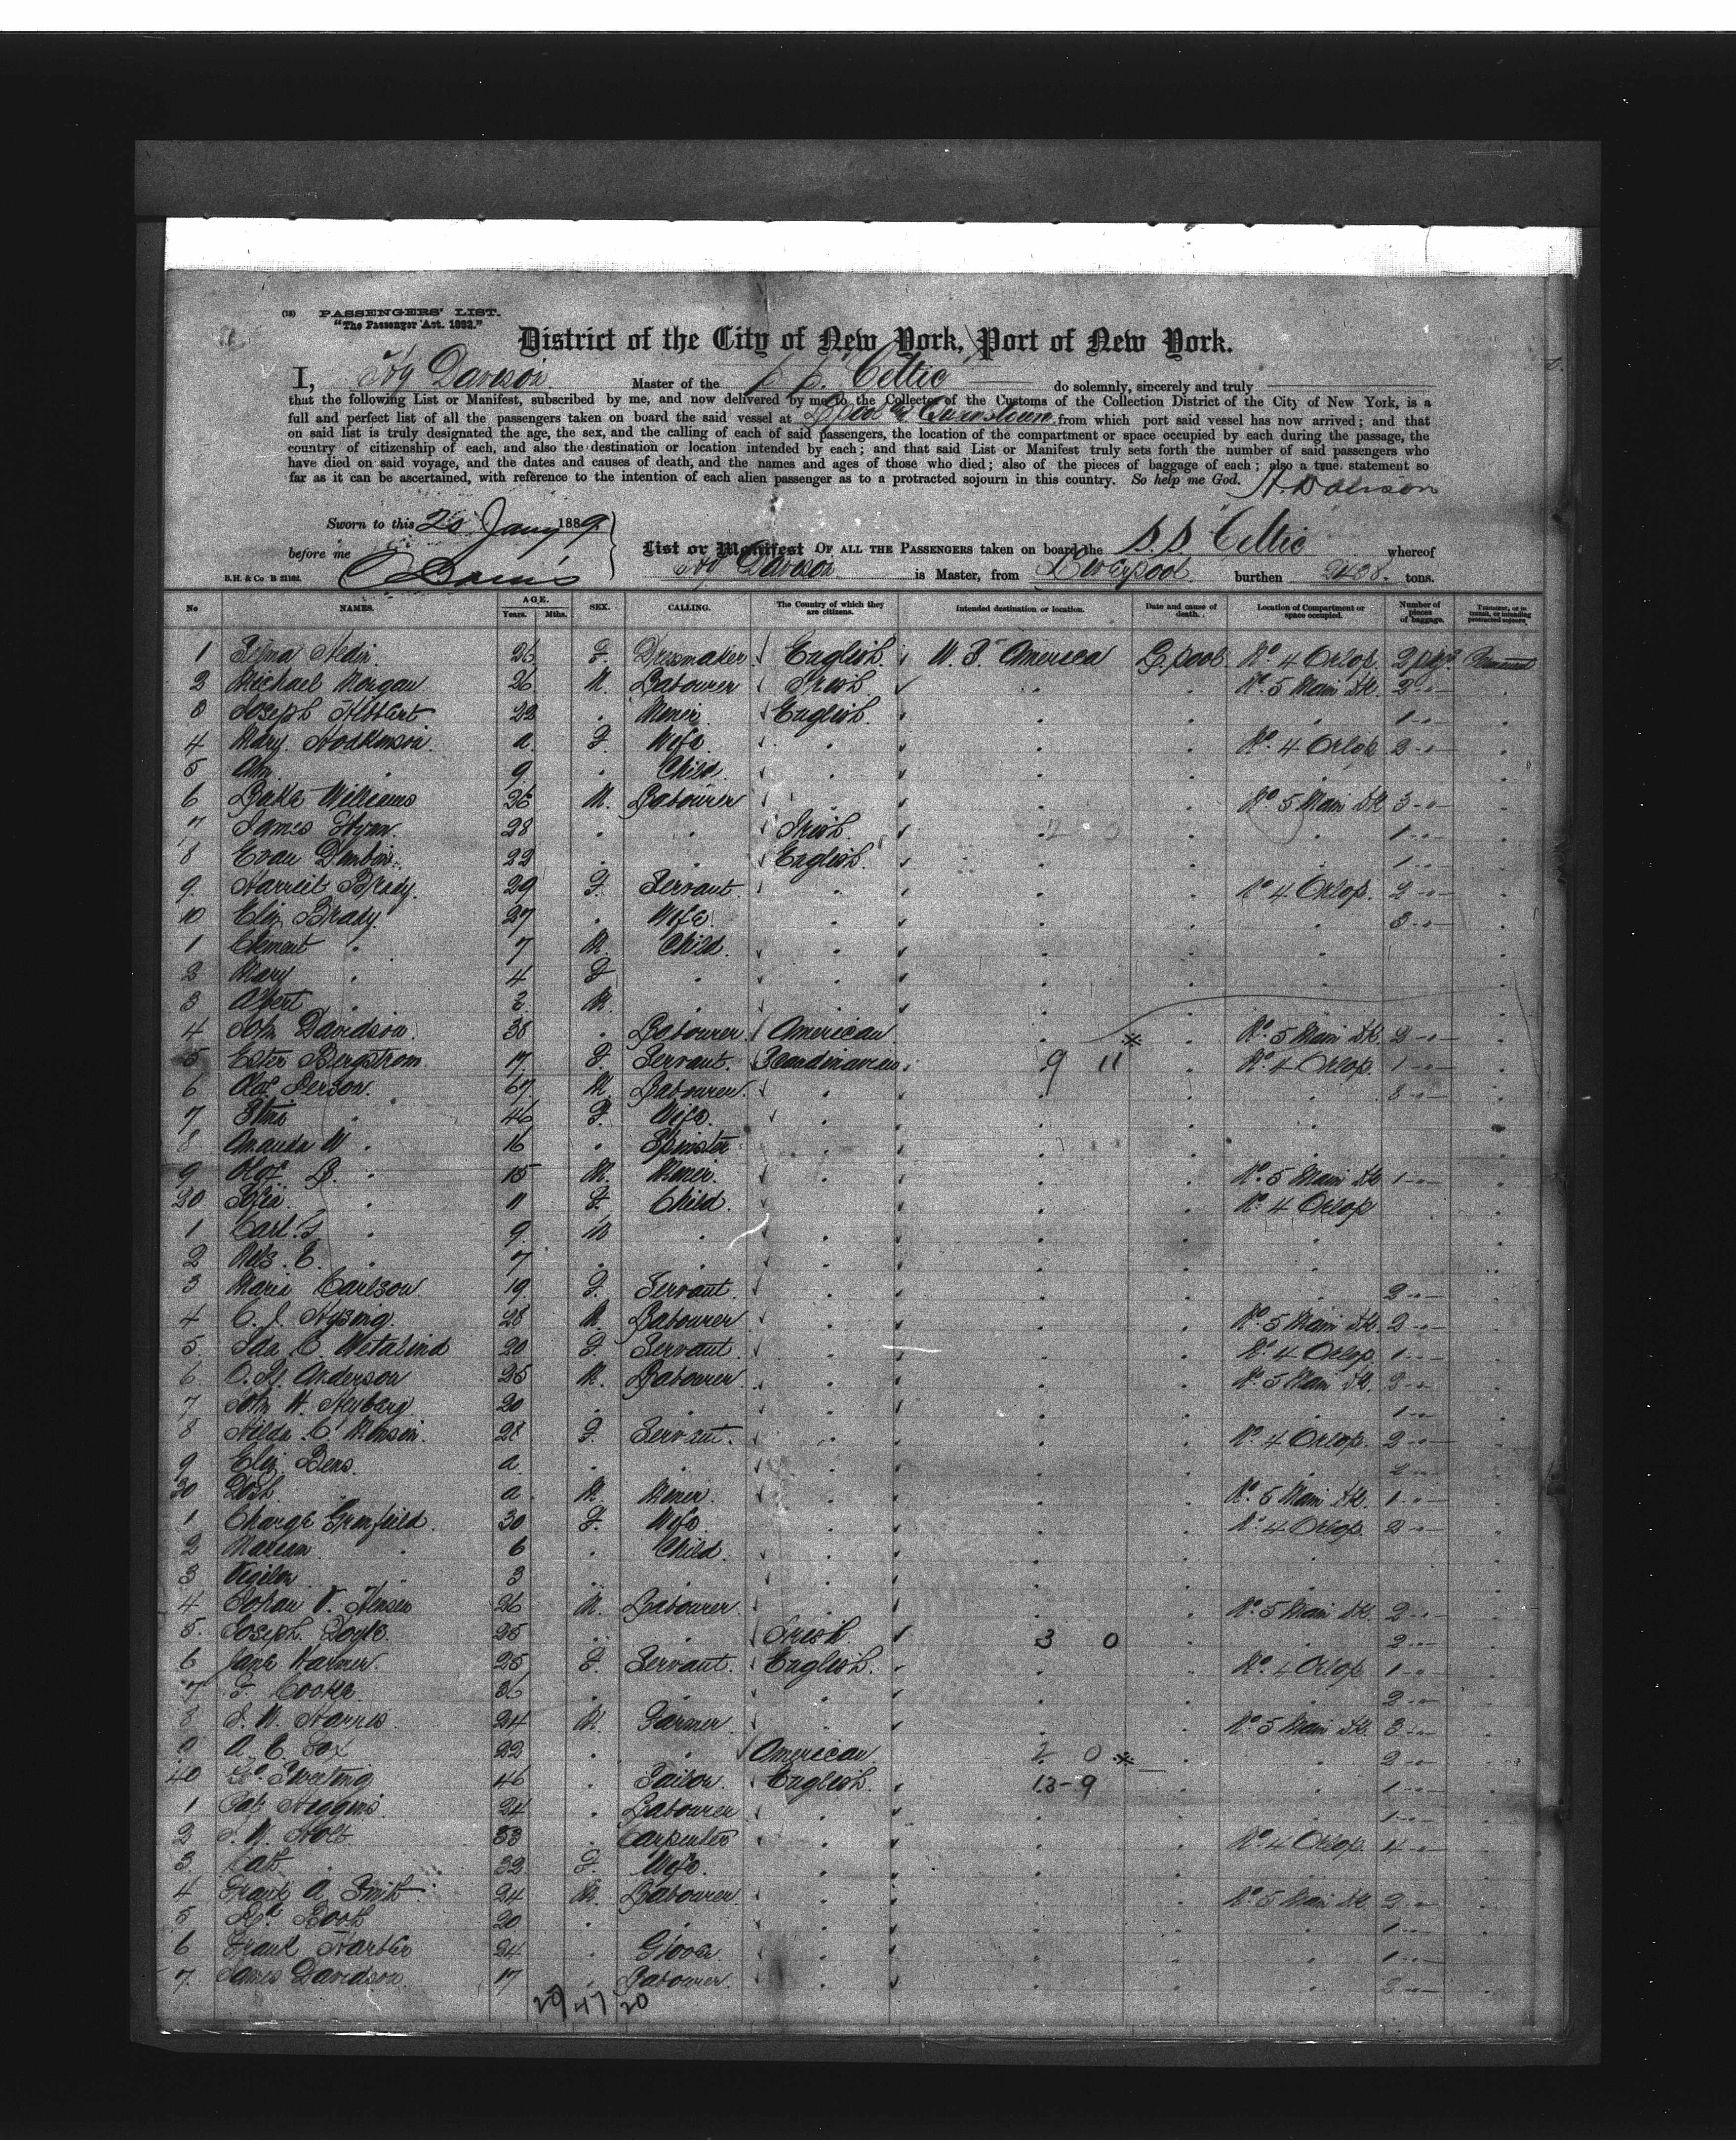 (18) PASSENGERS' LIST.
"The Passenger Act. 1882."
District of the City of New York, Port of New York.
I, Hy Davison Master of the S.S. "Celtic" do solemnly, sincerely and truly
that the following List or Manifest, subscribed by me, and now delivered by me to the Collector of the Customs of the Collection District of the City of New York, is a
full and perfect list of all the passengers taken on board the said vessel at L'pool & Queenstown from which port said vessel has now arrived; and that
on said list is truly designated the age, the sex, and the calling of each of said passengers, the location of the compartment or space occupied by each during the passage, the
country of citizenship of each, and also the destination or location intended by each; and that said List or Manifest truly sets forth the number of said passengers who
have died on said voyage, and the dates and causes of death, and the names and ages of those who died; also of the pieces of baggage of each; also a true statement so
far as it can be ascertained, with reference to the intention of each alien passenger as to a protracted sojourn in this country. So help me God. H. Davison
Sworn to this 20 Jany 1889
before me
List or Manifest OF ALL THE PASSENGERS taken on board the S.S. "Celtic" whereof
B.H. & Co B 21162. Hy Davison is Master, from Liverpool burthen 2438 tons.
No NAMES. AGE. Years. Mths. SEX. CALLING. The Country of which they are citizens. Intended destination or location. Date and cause of death. Location of Compartment or space occupied. Number of pieces of baggage. Transient, or in transit, or intending protracted sojourn.
1 Selma Hedin 25 F. Dressmaker English U.S. America L'pool No. 4 Orlop 2 pkgs
2 Michael Morgan 26 M. Labourer Irish " " No. 5 Main Dk. 2 "
3 Joseph Hibbert 22 " Miner English " " " 1 "
4 Mary Hodkinson a F. Wife " " " No. 4 Orlop 2 "
5 Ann " 9 " Child " " "
6 Williams 26 M. Labourer " " " No. 5 Main Dk 3 "
7 James Flynn 28 " " Irish " " " 1 "
8 Evan 22 " " English " " " 1 "
9 Harriet Brady 29 F. Servant " " " No. 4 Orlop. 2 "
10 Eliz Brady 27 " Wife " " " " 3 "
1 Clement " 7 M. Child " " "
2 Mary " 4 F " " " "
3 Albert " 2 M. " " " "
4 John Davidson 38 " Labourer American " " No. 5 Main Dk. 2 "
5 Ester Bergstrom 17 F. Servant Scandinavian 9 11 " No. 4 Orlop. 1 "
6 Olof Person 67 M. Labourer " " " " 3 "
7 " 46 F. Wife " " "
8 Amanda W " 16 " Spinster " " "
9 Olof " 15 M. Miner " " " No. 5 Main Dk 1 "
20 Sofia " 11 F. Child " " " No. 4 Orlop
1 Carl F. " 9 M " " " "
2 Nils E. " 7 " " " " "
3 Maria Carlson 19 F. Servant " " " 2 "
4 C. J. Nysing 28 M. Labourer " " " No. 5 Main Dk. 2 "
5 Ida C. 20 F. Servant " " " No. 4 Orlop 1 "
6 Anderson 25 M. Labourer " " " No. 5 Main Dk. 2 "
7 John W. Nyberg 20 " " " " " " 1 "
8 Hilda C. Monson 28 F. Servant " " " No. 4 Orlop. 2 "
9 Eliz Bens a " " " " " " 2 "
30 a M. Miner " " " No. 5 Main Dk. 1 "
1 Grenfield 30 F. Wife " " " No. 4 Orlop 2 "
2 6 " Child " " "
3 3 " " " " "
4 Johan V. 26 M. Labourer " " " No. 5 Main Dk. 2 "
5 Joseph Doyle 25 " " Irish 3 0 " " 2 "
6 Jane Warner 25 F. Servant English " " No. 4 Orlop 1 "
7 F. Cooke 36 " " " " " " 2 "
8 Harris 24 M. Farmer " " " No. 5 Main Dk. 3 "
9 A. C. Fox 22 " " American 2 0 " " 2 "
40 Geo. Sweeting 46 " Tailor English 13-9 " " 1 "
1 Pat Higgins 24 " Labourer " " " " 1 "
2 Holt 33 " Carpenter " " " No. 4 Orlop 4 "
3 Kate " 32 F. Wife " " "
4 Frank A Smith 24 M. Labourer " " " No. 5 Main Dk. 2 "
5 Booth 20 " " " " " " 1 "
6 Frank 24 " " " " " 1 "
7 James Davidson 17 " Labourer " " " " 2 "
29 47 20